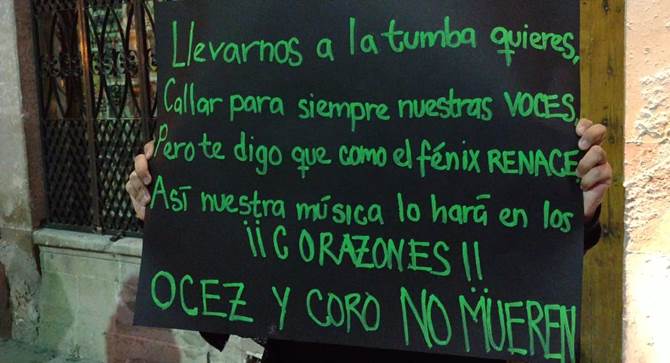 Llevarnos a la tumba quieres,
Callar para siempre nuestras VOCES,
Pero te digo que como el fénix RENACE
Así nuestra música lo hará en los
¡¡CORAZONES!!
OCEZ Y CORO NO MUEREN